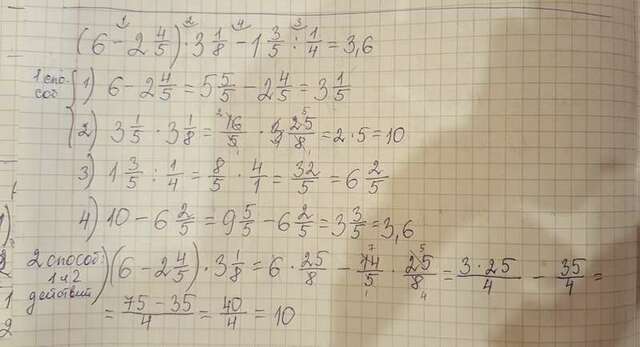 (6 - 2 4/5) · 3 1/8 - 1 3/5 : 1/4 = 3,6
1 спо-
соб
1) 6 - 2 4/5 = 5 5/5 - 2 4/5 = 3 1/5
2) 3 1/5 · 3 1/8 = 16/5 · 25/8 = 2 · 5 = 10
3) 1 3/5 : 1/4 = 8/5 · 4/1 = 32/5 = 6 2/5
4) 10 - 6 2/5 = 9 5/5 - 6 2/5 = 3 3/5 = 3,6
2 способ:
1 и 2
действий) (6 - 2 4/5) · 3 1/8 = 6 · 25/8 - 14/5 · 25/8 = 3 · 25/4 - 35/4 =
= 75 - 35/4 = 40/4 = 10